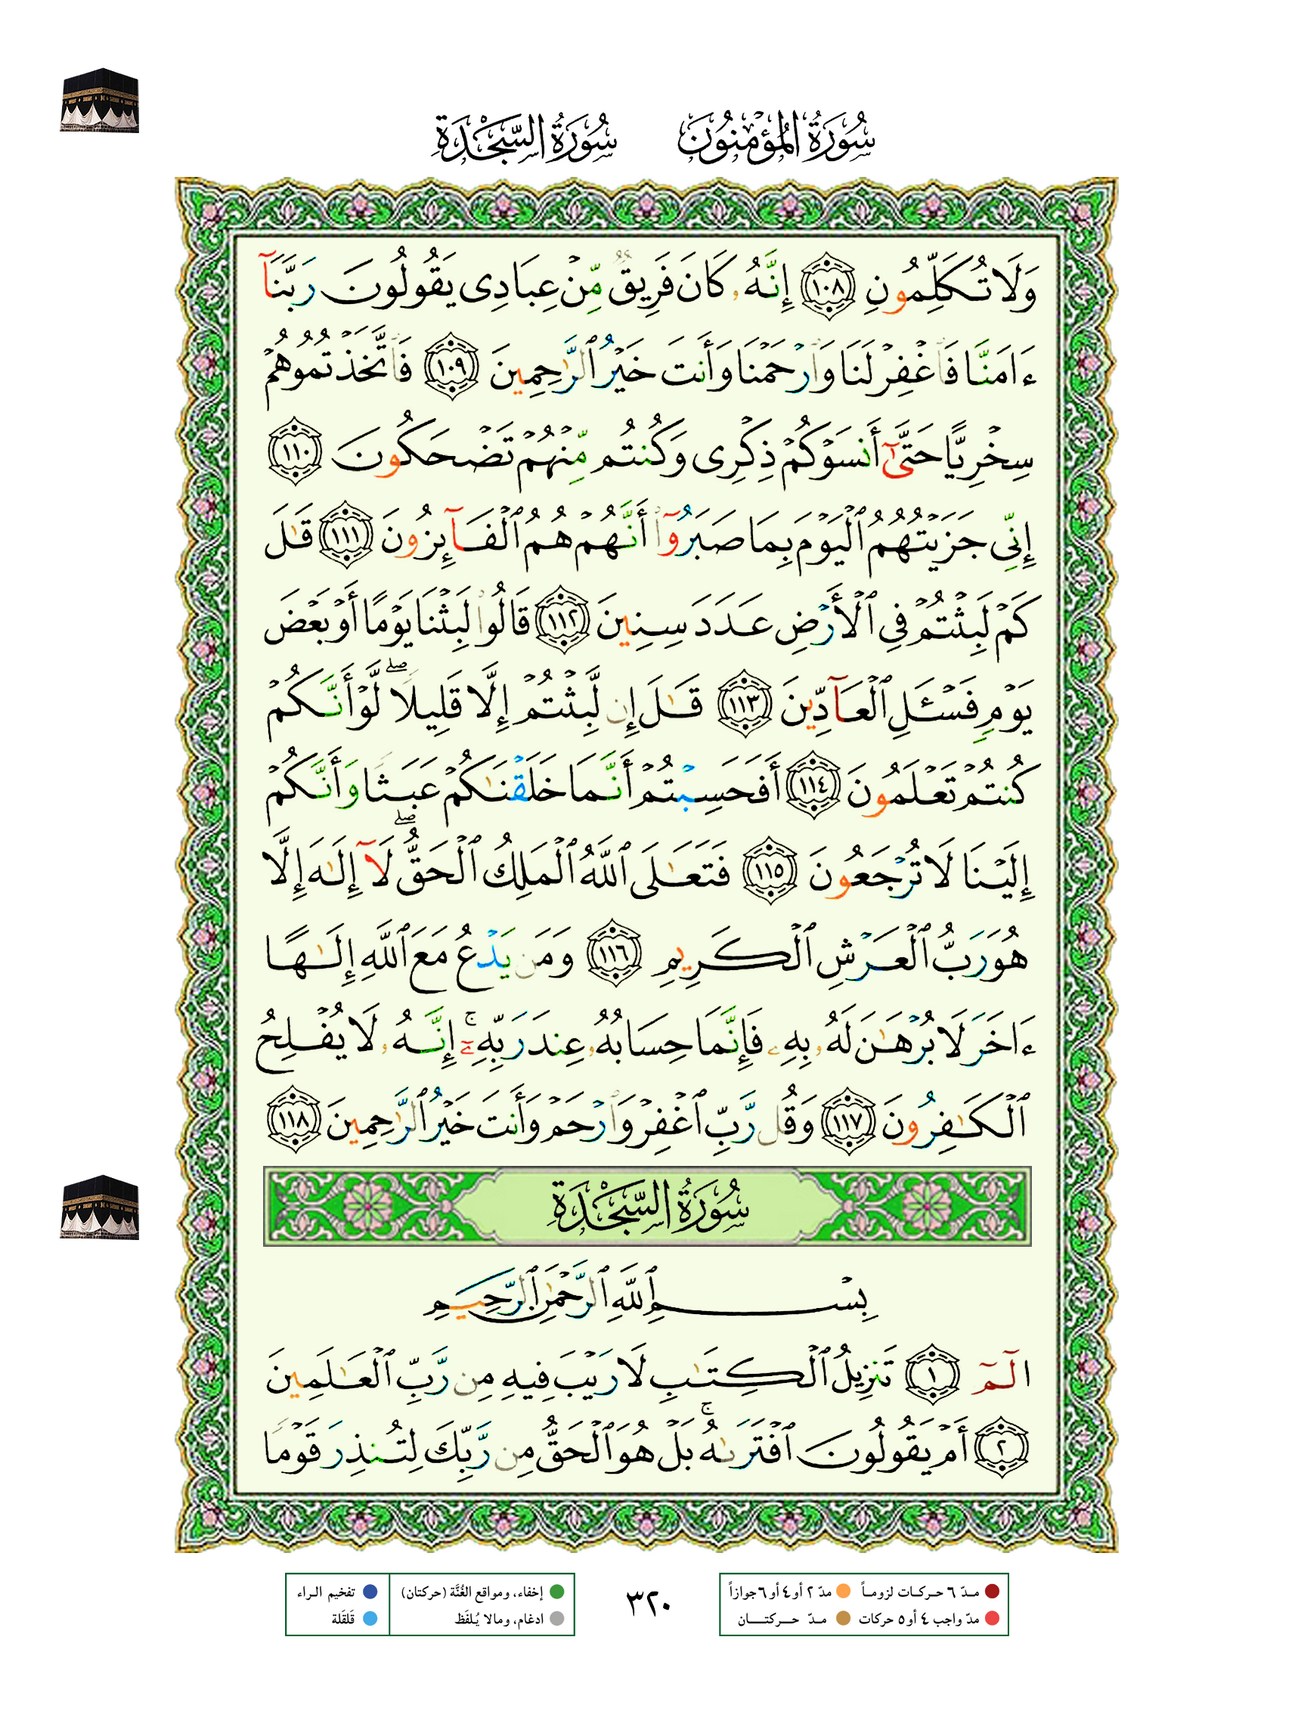 سُورَةُ المُؤْمِنُونَ سُورَةُ السَّجْدَةِ
وَلَا تُكَلِّمُونِ ١٠٨ إِنَّهُۥ كَانَ فَرِيقٌ مِّنْ عِبَادِى يَقُولُونَ رَبَّنَآ
ءَامَنَّا فَٱغْفِرْ لَنَا وَٱرْحَمْنَا وَأَنتَ خَيْرُ ٱلرَّٰحِمِينَ ١٠٩ فَٱتَّخَذْتُمُوهُمْ
سِخْرِيًّا حَتَّىٰٓ أَنسَوْكُمْ ذِكْرِى وَكُنتُم مِّنْهُمْ تَضْحَكُونَ ١١٠
إِنِّى جَزَيْتُهُمُ ٱلْيَوْمَ بِمَا صَبَرُوٓا۟ أَنَّهُمْ هُمُ ٱلْفَآئِزُونَ ١١١ قَٰلَ
كَمْ لَبِثْتُمْ فِى ٱلْأَرْضِ عَدَدَ سِنِينَ ١١٢ قَالُوا۟ لَبِثْنَا يَوْمًا أَوْ بَعْضَ
يَوْمٍ فَسْـَٔلِ ٱلْعَآدِّينَ ١١٣ قَٰلَ إِن لَّبِثْتُمْ إِلَّا قَلِيلًا ۖ لَّوْ أَنَّكُمْ
كُنتُمْ تَعْلَمُونَ ١١٤ أَفَحَسِبْتُمْ أَنَّمَا خَلَقْنَٰكُمْ عَبَثًا وَأَنَّكُمْ
إِلَيْنَا لَا تُرْجَعُونَ ١١٥ فَتَعَٰلَى ٱللَّهُ ٱلْمَلِكُ ٱلْحَقُّ ۖ لَآ إِلَٰهَ إِلَّا
هُوَ رَبُّ ٱلْعَرْشِ ٱلْكَرِيمِ ١١٦ وَمَن يَدْعُ مَعَ ٱللَّهِ إِلَٰهًا
ءَاخَرَ لَا بُرْهَٰنَ لَهُۥ بِهِۦ فَإِنَّمَا حِسَابُهُۥ عِندَ رَبِّهِۦٓ ۚ إِنَّهُۥ لَا يُفْلِحُ
ٱلْكَٰفِرُونَ ١١٧ وَقُل رَّبِّ ٱغْفِرْ وَٱرْحَمْ وَأَنتَ خَيْرُ ٱلرَّٰحِمِينَ ١١٨
سُورَةُ السَّجْدَةِ
بِسْمِ ٱللَّهِ ٱلرَّحْمَٰنِ ٱلرَّحِيمِ
الٓمٓ ١ تَنزِيلُ ٱلْكِتَٰبِ لَا رَيْبَ فِيهِ مِن رَّبِّ ٱلْعَٰلَمِينَ
٢ أَمْ يَقُولُونَ ٱفْتَرَىٰهُ ۚ بَلْ هُوَ ٱلْحَقُّ مِن رَّبِّكَ لِتُنذِرَ قَوْمًا
مدّ ٦ حركات لزوماً مدّ ٢ أو ٤ أو ٦ جوازاً
مدّ واجب ٤ أو ٥ حركات مدّ حركتان
٣٢٠
إخفاء، ومواقع الغُنَّة (حركتان) تفخيم الراء
ادغام، ومالا يُلفَظ قَلقَلة